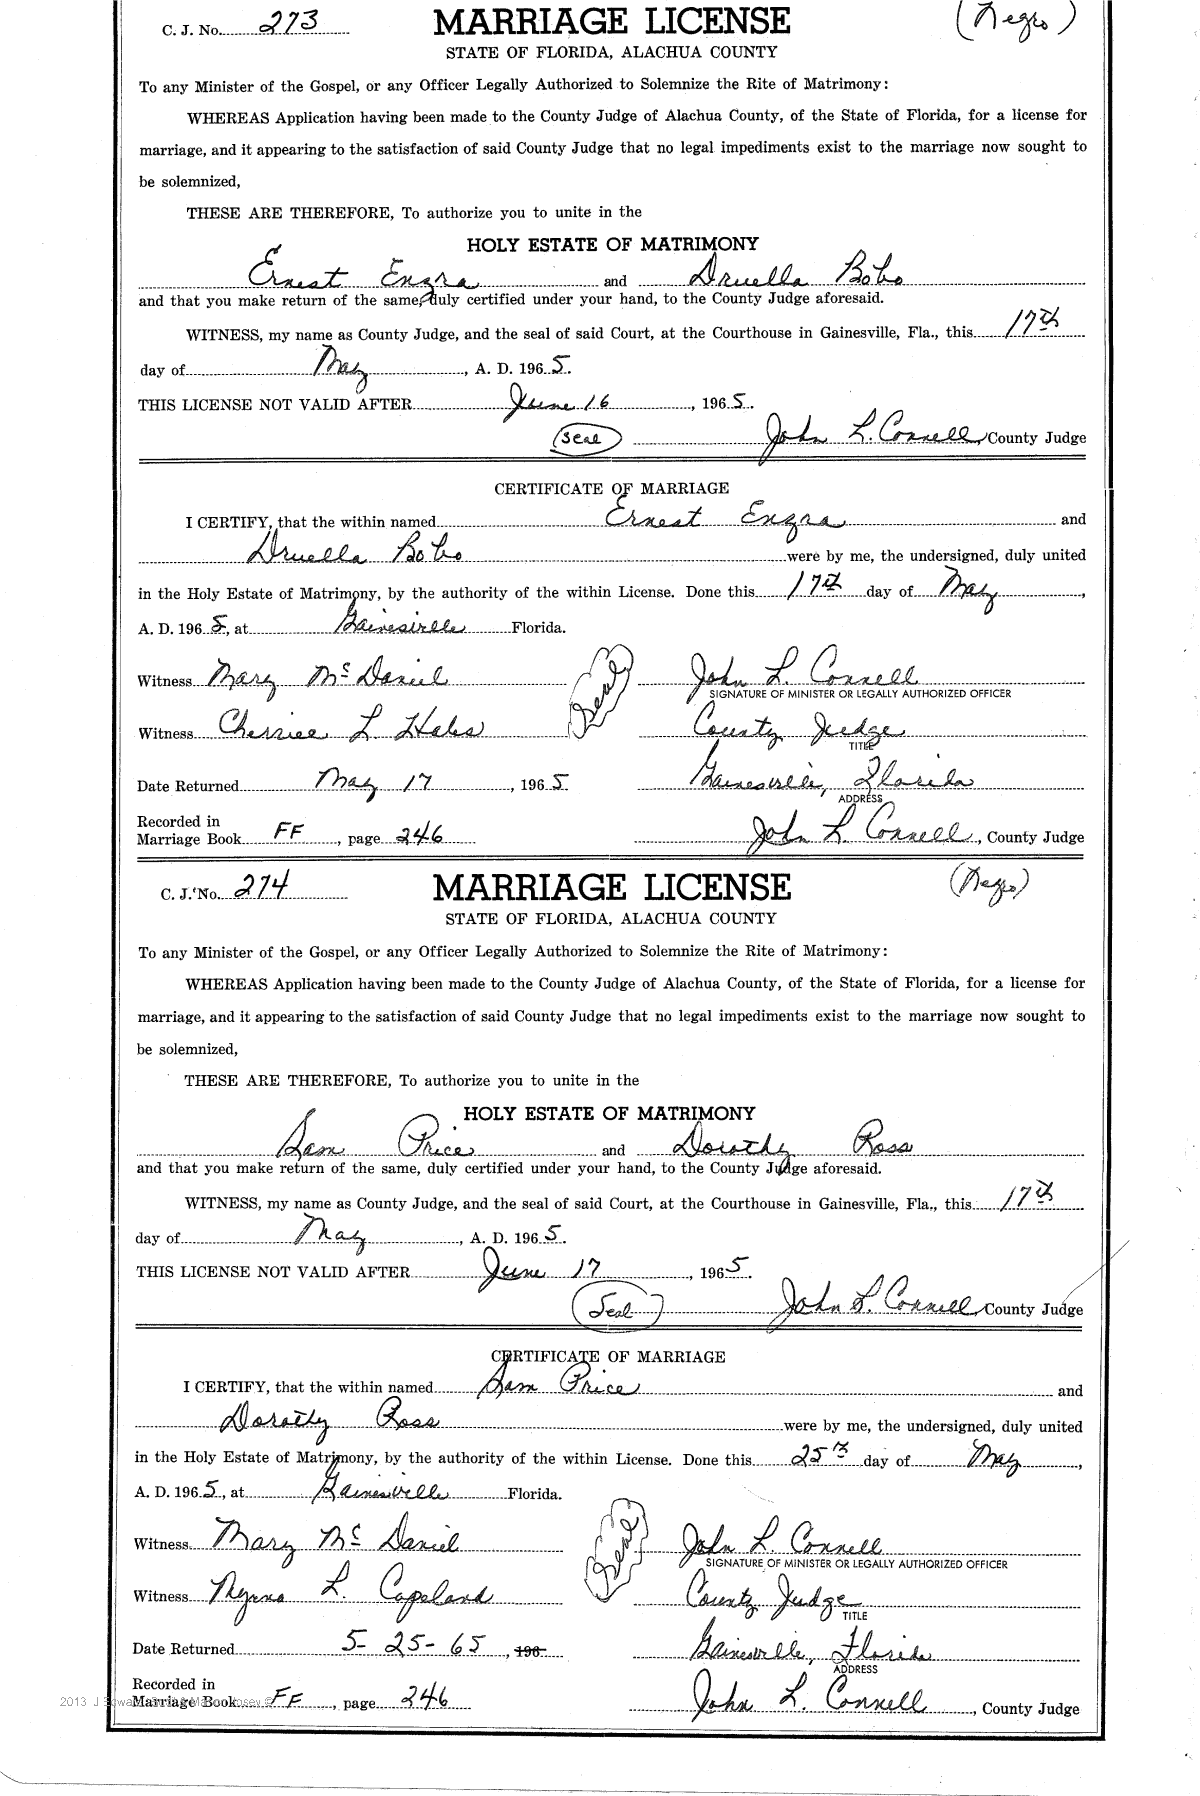 C. J. No. 273 MARRIAGE LICENSE (Negro)
STATE OF FLORIDA, ALACHUA COUNTY
To any Minister of the Gospel, or any Officer Legally Authorized to Solemnize the Rite of Matrimony:
WHEREAS Application having been made to the County Judge of Alachua County, of the State of Florida, for a license for
marriage, and it appearing to the satisfaction of said County Judge that no legal impediments exist to the marriage now sought to
be solemnized,
THESE ARE THEREFORE, To authorize you to unite in the
HOLY ESTATE OF MATRIMONY
Ernest Enzra and Druella Bobo
and that you make return of the same, duly certified under your hand, to the County Judge aforesaid.
WITNESS, my name as County Judge, and the seal of said Court, at the Courthouse in Gainesville, Fla., this 17th
day of May, A. D. 1965.
THIS LICENSE NOT VALID AFTER June 16, 1965.
(Seal) John L. Connell County Judge
CERTIFICATE OF MARRIAGE
I CERTIFY, that the within named Ernest Enzra and
Druella Bobo were by me, the undersigned, duly united
in the Holy Estate of Matrimony, by the authority of the within License. Done this 17th day of May,
A. D. 1965, at Gainesville Florida.
Witness Mary McDaniel (Seal) John L. Connell
SIGNATURE OF MINISTER OR LEGALLY AUTHORIZED OFFICER
Witness L. County Judge
TITLE
Date Returned May 17, 1965 Gainesville, Florida
ADDRESS
Recorded in
Marriage Book FF, page 246 John L. Connell, County Judge
C. J. No. 274 MARRIAGE LICENSE (Negro)
STATE OF FLORIDA, ALACHUA COUNTY
To any Minister of the Gospel, or any Officer Legally Authorized to Solemnize the Rite of Matrimony:
WHEREAS Application having been made to the County Judge of Alachua County, of the State of Florida, for a license for
marriage, and it appearing to the satisfaction of said County Judge that no legal impediments exist to the marriage now sought to
be solemnized,
THESE ARE THEREFORE, To authorize you to unite in the
HOLY ESTATE OF MATRIMONY
Sam Price and Dorothy Ross
and that you make return of the same, duly certified under your hand, to the County Judge aforesaid.
WITNESS, my name as County Judge, and the seal of said Court, at the Courthouse in Gainesville, Fla., this 17th
day of May, A. D. 1965.
THIS LICENSE NOT VALID AFTER June 17, 1965.
(Seal) John L. Connell County Judge
CERTIFICATE OF MARRIAGE
I CERTIFY, that the within named Sam Price and
Dorothy Ross were by me, the undersigned, duly united
in the Holy Estate of Matrimony, by the authority of the within License. Done this 25th day of May,
A. D. 1965, at Gainesville Florida.
Witness Mary McDaniel (Seal) John L. Connell
SIGNATURE OF MINISTER OR LEGALLY AUTHORIZED OFFICER
Witness Myrna L. Copeland County Judge
TITLE
Date Returned 5-25-65, 196 Gainesville, Florida
ADDRESS
Recorded in
Marriage Book FF, page 246 John L. Connell, County Judge
2013 J